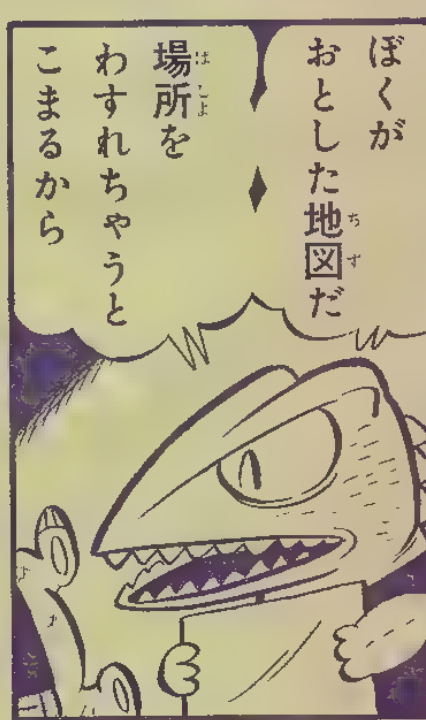 ぼくが
おとした地図だ
場所を
わすれちゃうと
こまるから